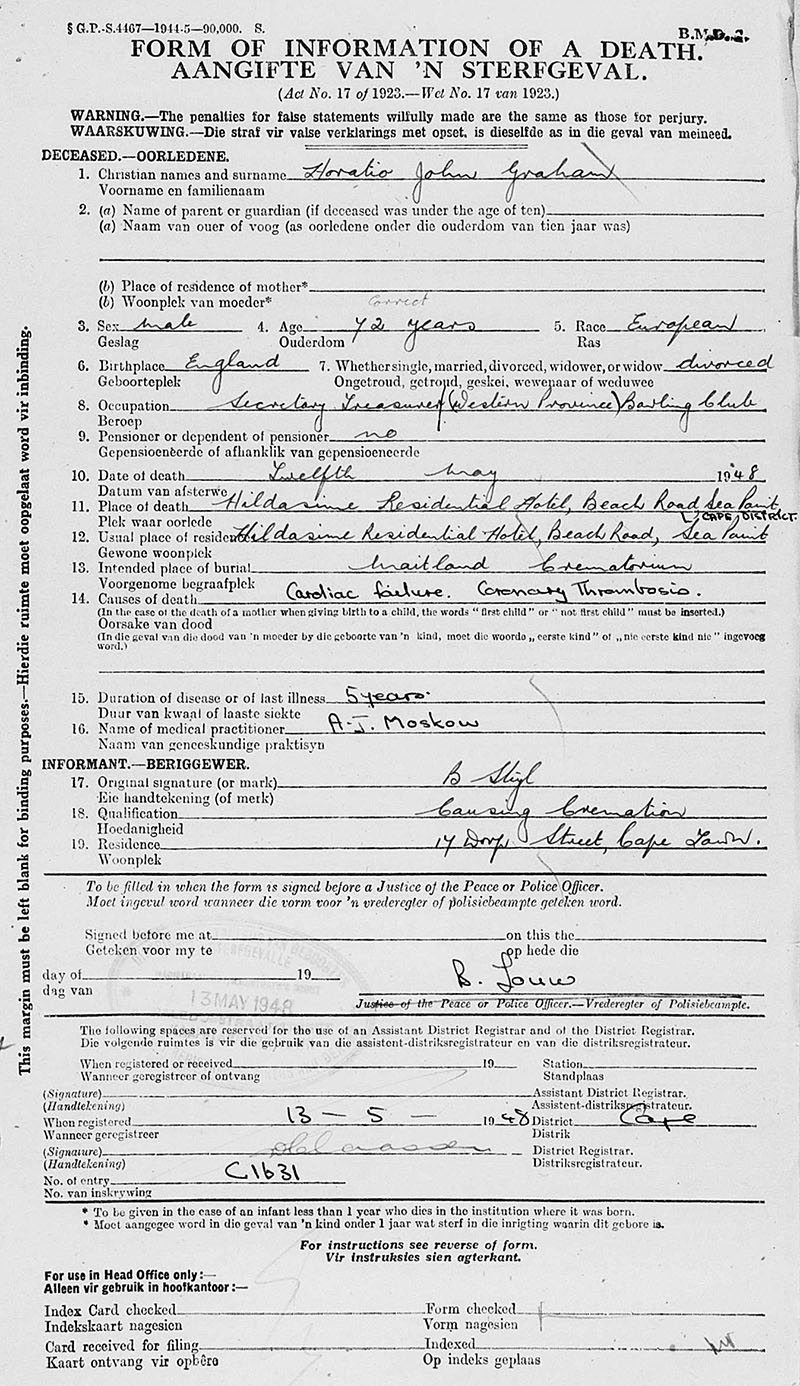 § G.P.-S.4467—1944-5—90,000. S.
B.M.D. 2.
FORM OF INFORMATION OF A DEATH.
AANGIFTE VAN 'N STERFGEVAL.
(Act No. 17 of 1923.—Wet No. 17 van 1923.)
WARNING.—The penalties for false statements wilfully made are the same as those for perjury.
WAARSKUWING.—Die straf vir valse verklarings met opset, is dieselfde as in die geval van meineed.
DECEASED.—OORLEDENE.
1. Christian names and surname Horatio John Graham
Voorname en familienaam
2. (a) Name of parent or guardian (if deceased was under the age of ten)
(a) Naam van ouer of voog (as oorledene onder die ouderdom van tien jaar was)
(b) Place of residence of mother*
(b) Woonplek van moeder* Correct
3. Sex male 4. Age 72 years 5. Race European
Geslag Ouderdom Ras
6. Birthplace England 7. Whether single, married, divorced, widower, or widow divorced
Geboorteplek Ongetroud, getroud, geskei, wewenaar of weduwee
8. Occupation Secretary Treasurer (Western Province) Bowling Club
Beroep
9. Pensioner or dependent of pensioner no
Gepensioeneerde of afhanklik van gepensioeneerde
10. Date of death Twelfth May 1948
Datum van afsterwe
11. Place of death Hildasime Residential Hotel, Beach Road Sea Point
Plek waar oorlede CAPE DISTRICT.
12. Usual place of residence Hildasime Residential Hotel, Beach Road, Sea Point
Gewone woonplek
13. Intended place of burial Maitland Crematorium
Voorgenome begraafplek
14. Causes of death Cardiac failure. Coronary Thrombosis.
(In the case of the death of a mother when giving birth to a child, the words "first child" or "not first child" must be inserted.)
Oorsake van dood
(In die geval van die dood van 'n moeder by die geboorte van 'n kind, moet die woorde „eerste kind" of „nie eerste kind nie" ingevoeg word.)
15. Duration of disease or of last illness 5 years.
Duur van kwaal of laaste siekte
16. Name of medical practitioner A. J. Moskow
Naam van geneeskundige praktisyn
INFORMANT.—BERIGGEWER.
17. Original signature (or mark) B
Eie handtekening (of merk)
18. Qualification Causing Cremation
Hoedanigheid
19. Residence 17 Dorp Street, Cape Town.
Woonplek
To be filled in when the form is signed before a Justice of the Peace or Police Officer.
Moet ingevul word wanneer die vorm voor 'n vrederegter of polisiebeampte geteken word.
Signed before me at on this the
Geteken voor my te op hede die
day of 19 B. Louw
dag van
13 MAY 1948
Justice of the Peace or Police Officer.—Vrederegter of Polisiebeampte.
The following spaces are reserved for the use of an Assistant District Registrar and of the District Registrar.
Die volgende ruimtes is vir die gebruik van die assistent-distriksregistrateur en van die distriksregistrateur.
When registered or received 19 Station
Wanneer geregistreer of ontvang Standplaas
(Signature) Assistant District Registrar.
(Handtekening) Assistent-distriksregistrateur.
When registered 13 - 5 - 1948 District Cape
Wanneer geregistreer Distrik
(Signature) District Registrar.
(Handtekening) Distriksregistrateur.
No. of entry C1631
No. van inskrywing
* To be given in the case of an infant less than 1 year who dies in the institution where it was born.
* Moet aangegee word in die geval van 'n kind onder 1 jaar wat sterf in die inrigting waarin dit gebore is.
For instructions see reverse of form.
Vir instruksies sien agterkant.
For use in Head Office only:—
Alleen vir gebruik in hoofkantoor:—
Index Card checked Form checked
Indekskaart nagesien Vorm nagesien
Card received for filing Indexed
Kaart ontvang vir opbêre Op indeks geplaas
This margin must be left blank for binding purposes.—Hierdie ruimte moet oopgelaat word vir inbinding.